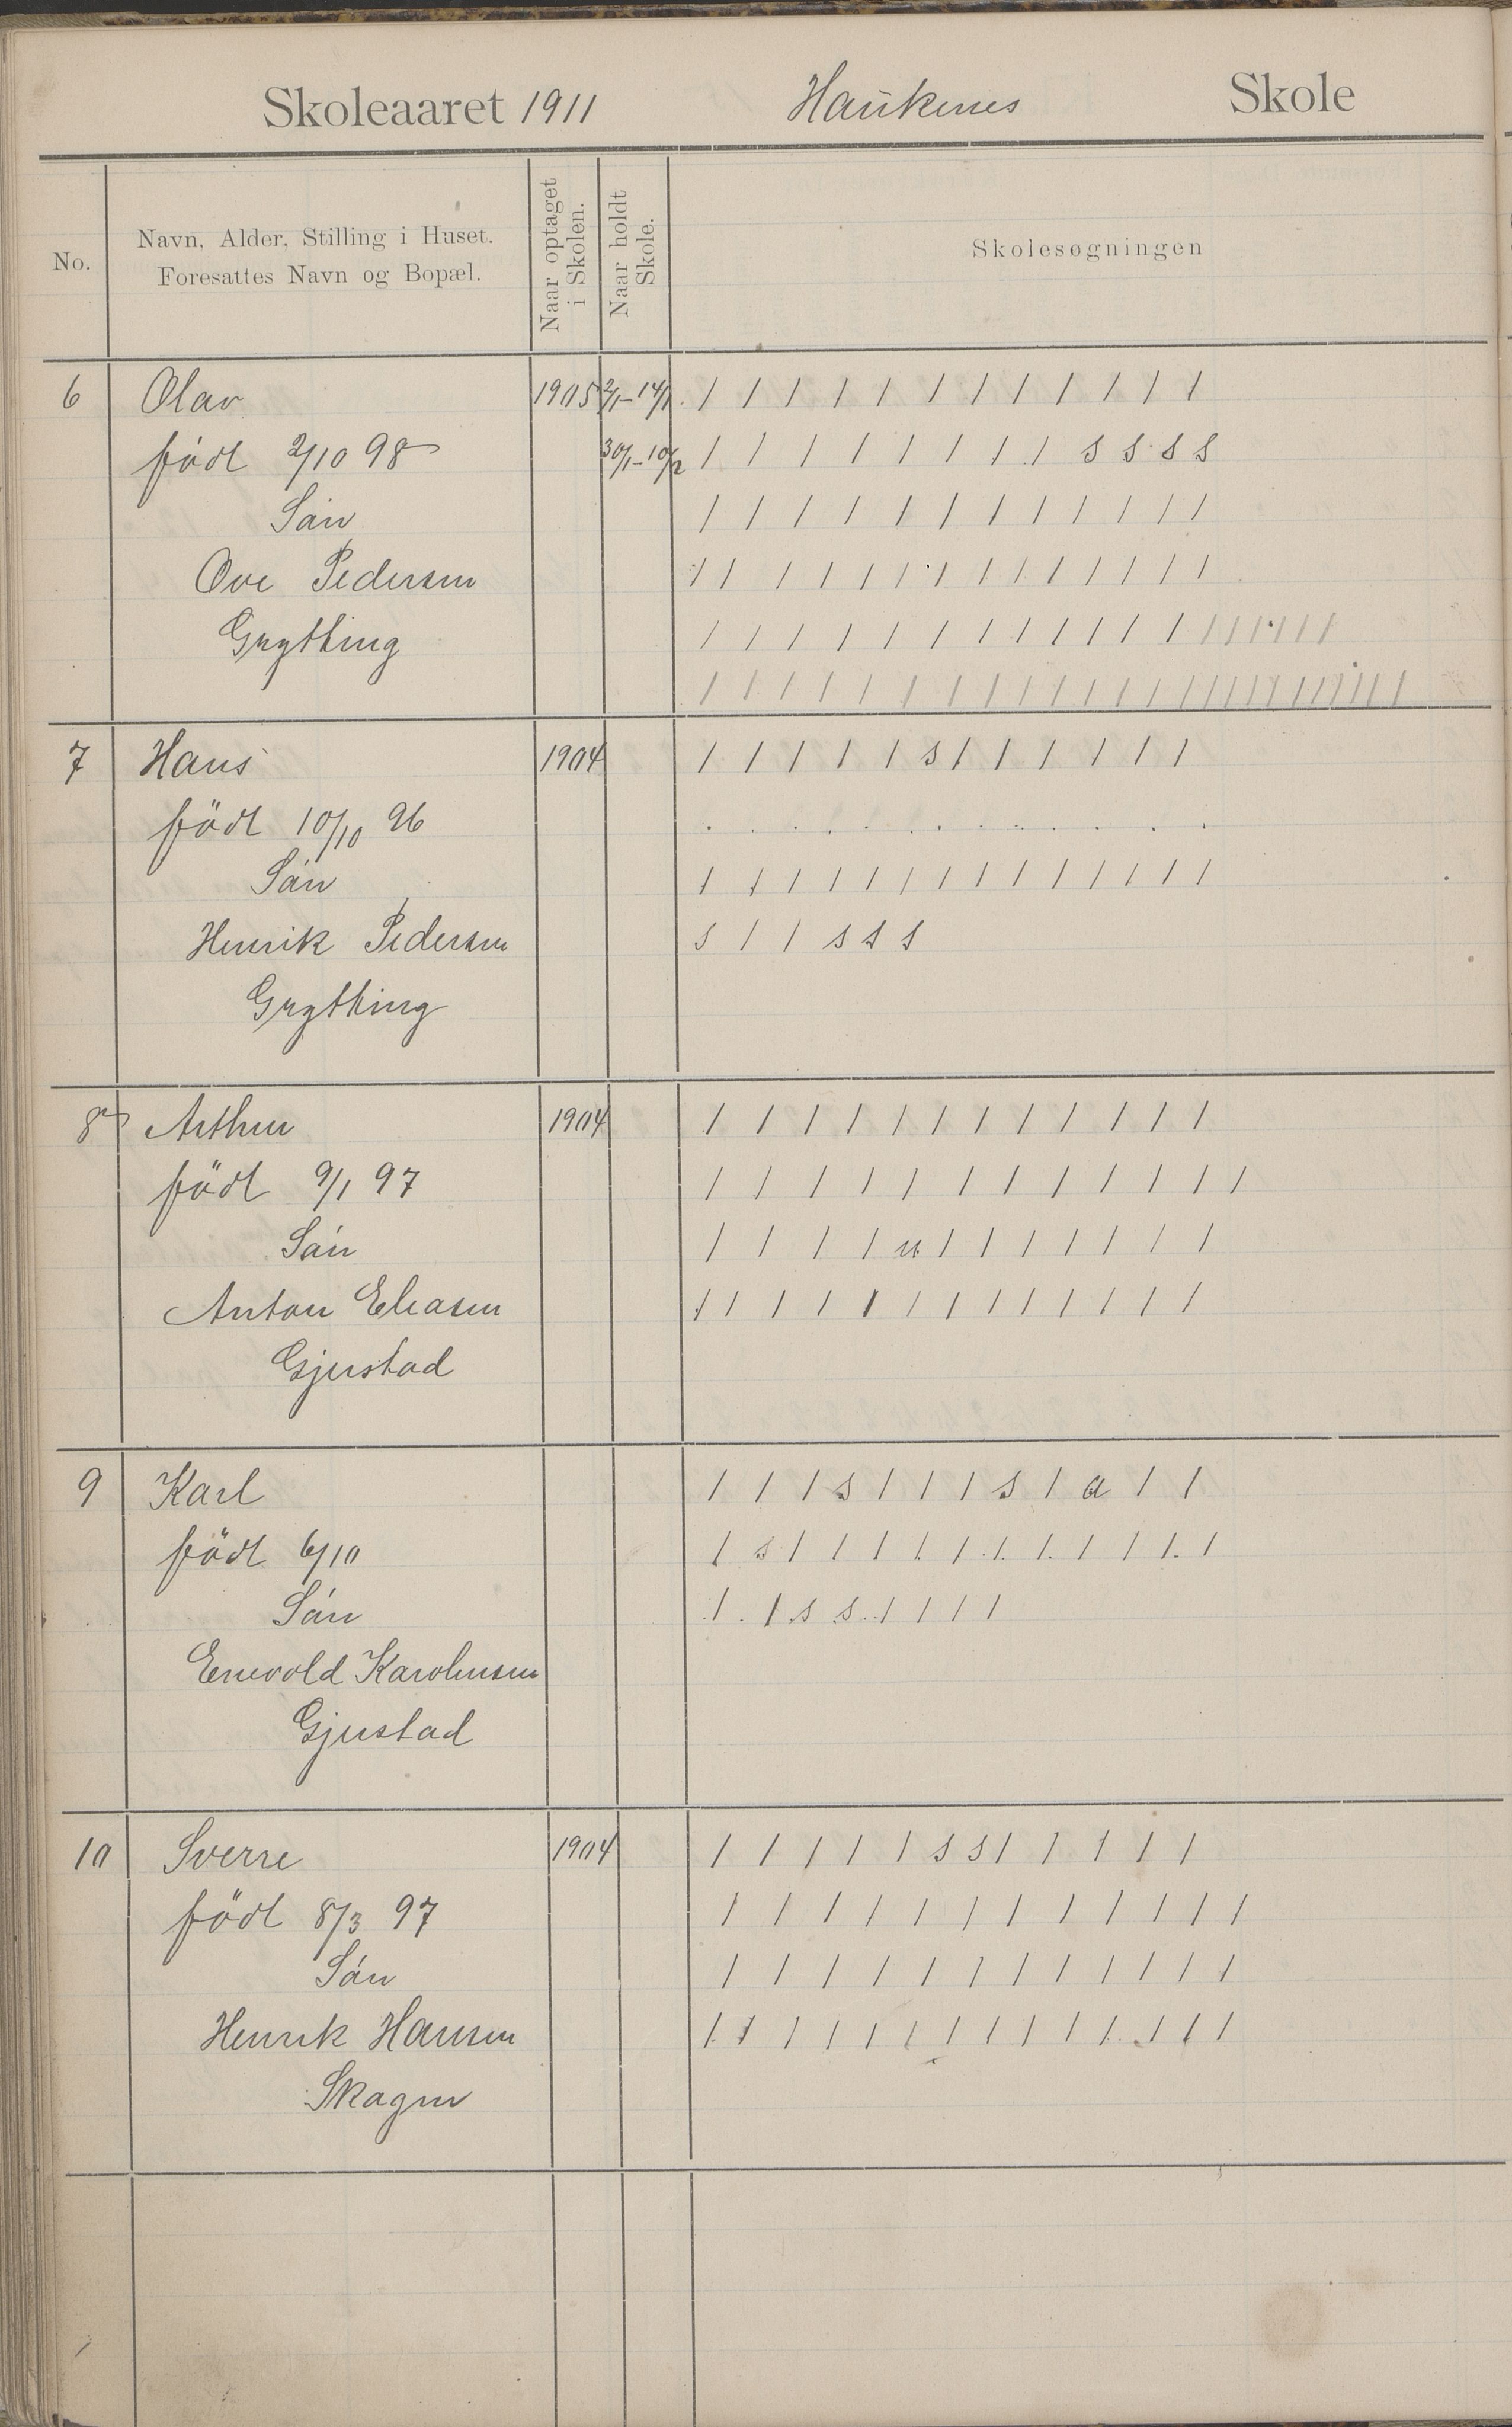 Skoleaaret 1911 Haukenes Skole
No. Navn, Alder, Stilling i Huset. Foresattes Navn og Bopæl. Naar optaget i Skolen. Naar holdt Skole. Skolesøgningen
6 Olav 1905 2/1-14/1. / / / / / / / / / / / /
født 2/10 98 30/1-10/2 / / / / / / / / s s s s
Sön / / / / / / / / / / / /
Ove Pedersen / / / / / / / / / / / / / /
Grytting / / / / / / / / / / / / / / / / / /
/ / / / / / / / / / / / / / / / / / / / / / / / / /
7 Hans 1904 / / / / / s / / / / / /
född 10/10 96 . . . . . . . . . . . . .
Sön / / / / / / / / / / / / / /
Henrik Pedersen s / / s s s
Grytting
8 Arthur 1904 / / / / / / / / / / / /
född 9/1 97 / / / / / / / / / / / /
Sön / / / / u / / / / / / /
Anton Eliasen / / / / / / / / / / / / /
Gjerstad
9 Karl / / / s / / / s / a / /
född 6/10 / s / / / / / / / / / / /
Sön / / s s / / / /
Enevold Karolinsen
Gjerstad
10 Sverre 1904 / / / / / s s / / / / /
född 8/3 97 / / / / / / / / / / / /
Sön / / / / / / / / / / / /
Henrik Hansen / / / / / / / / / / / / / /
Skagen